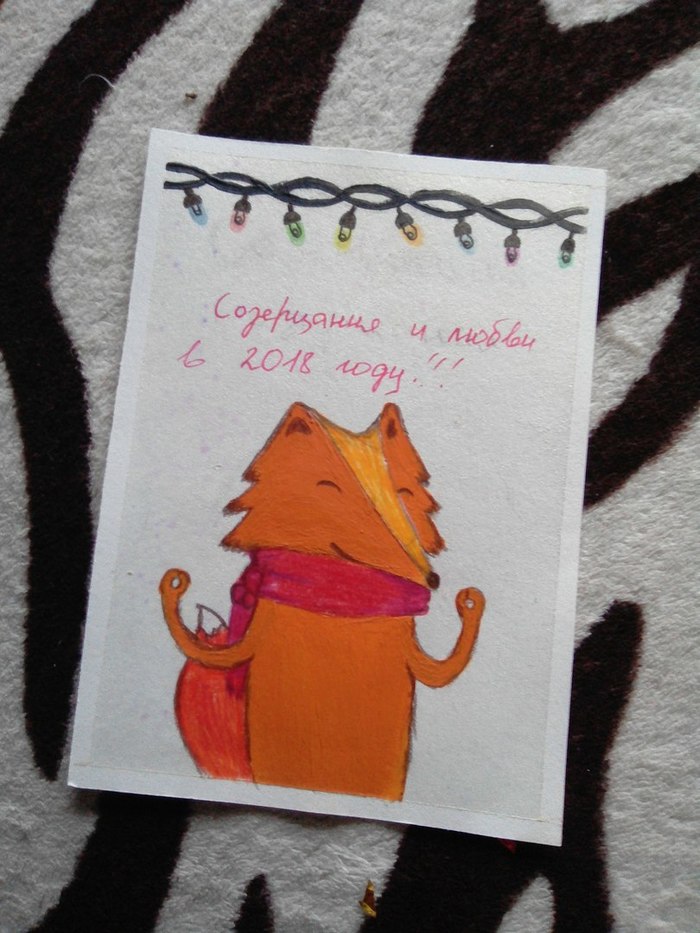 Созерцания и любви
в 2018 году!!!